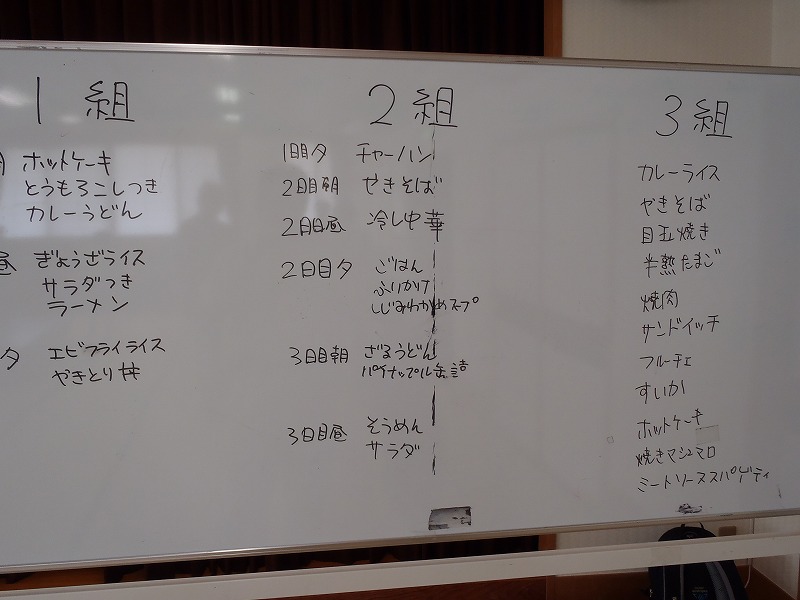 1組
ホットケーキ
とうもろこしつき
カレーうどん
昼 ぎょうざライス
サラダつき
ラーメン
夕 エビフライライス
やきとり丼
2組
1日目夕 チャーハン
2日目朝 やきそば
2日目昼 冷し中華
2日目夕 ごはん
ふりかけ
しじみわかめスープ
3日目朝 ざるうどん
パイナップル缶詰
3日目昼 そうめん
サラダ
3組
カレーライス
やきそば
目玉焼き
半熟たまご
焼肉
サンドイッチ
フルーチェ
すいか
ホットケーキ
焼きマシュマロ
ミートソーススパゲティ